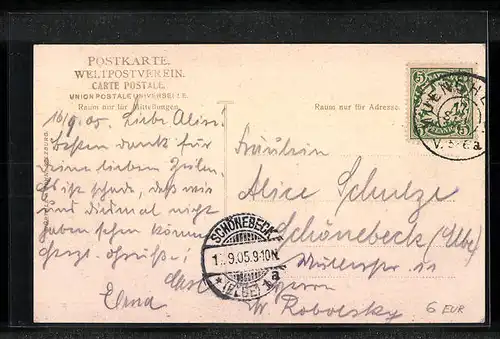 POSTKARTE.
WELTPOSTVEREIN.
CARTE POSTALE.
UNION POSTALE UNIVERSELLE.
Raum nur für Mitteilungen.
Raum nur für Adresse.
16/9.05. Liebe Alise!
Besten Dank für
Deine lieben Zeilen.
Es ist schade, dass wir
uns diesmal nicht
haben sehen können
Herzl. Grüße!
Erna
Fräulein
Alice Schulze
Schönebeck (Elbe)
Robolsky
5
PFENNIG
V. 5-6 a
SCHÖNEBECK
9.05.9-10N.
* (ELBE) 1a
6 EUR